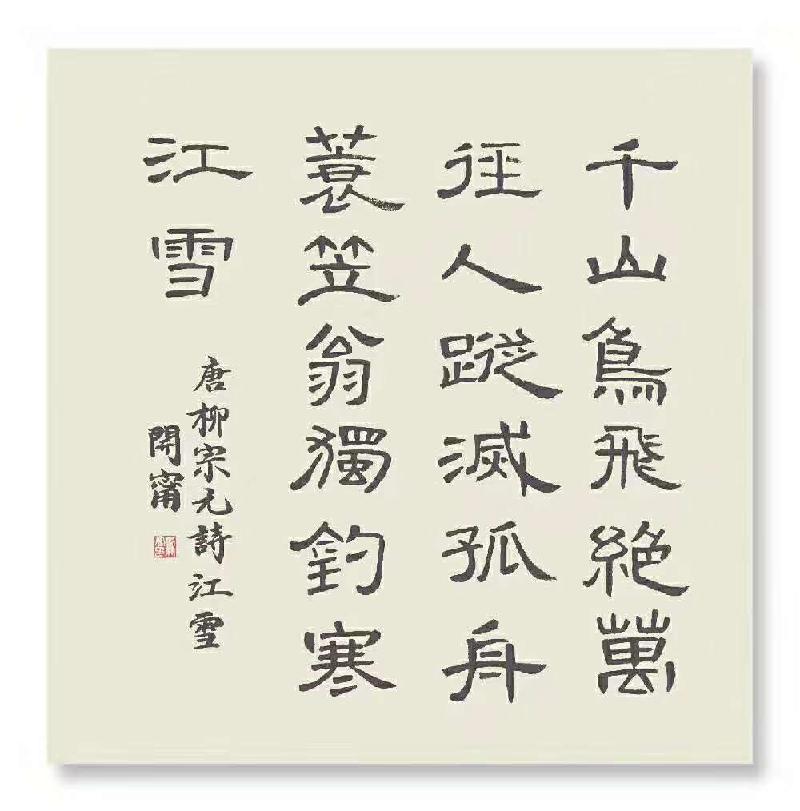 千山鳥飛絶萬
徑人蹤滅孤舟
蓑笠翁獨釣寒
江雪
唐柳宗元詩江雪
開甯